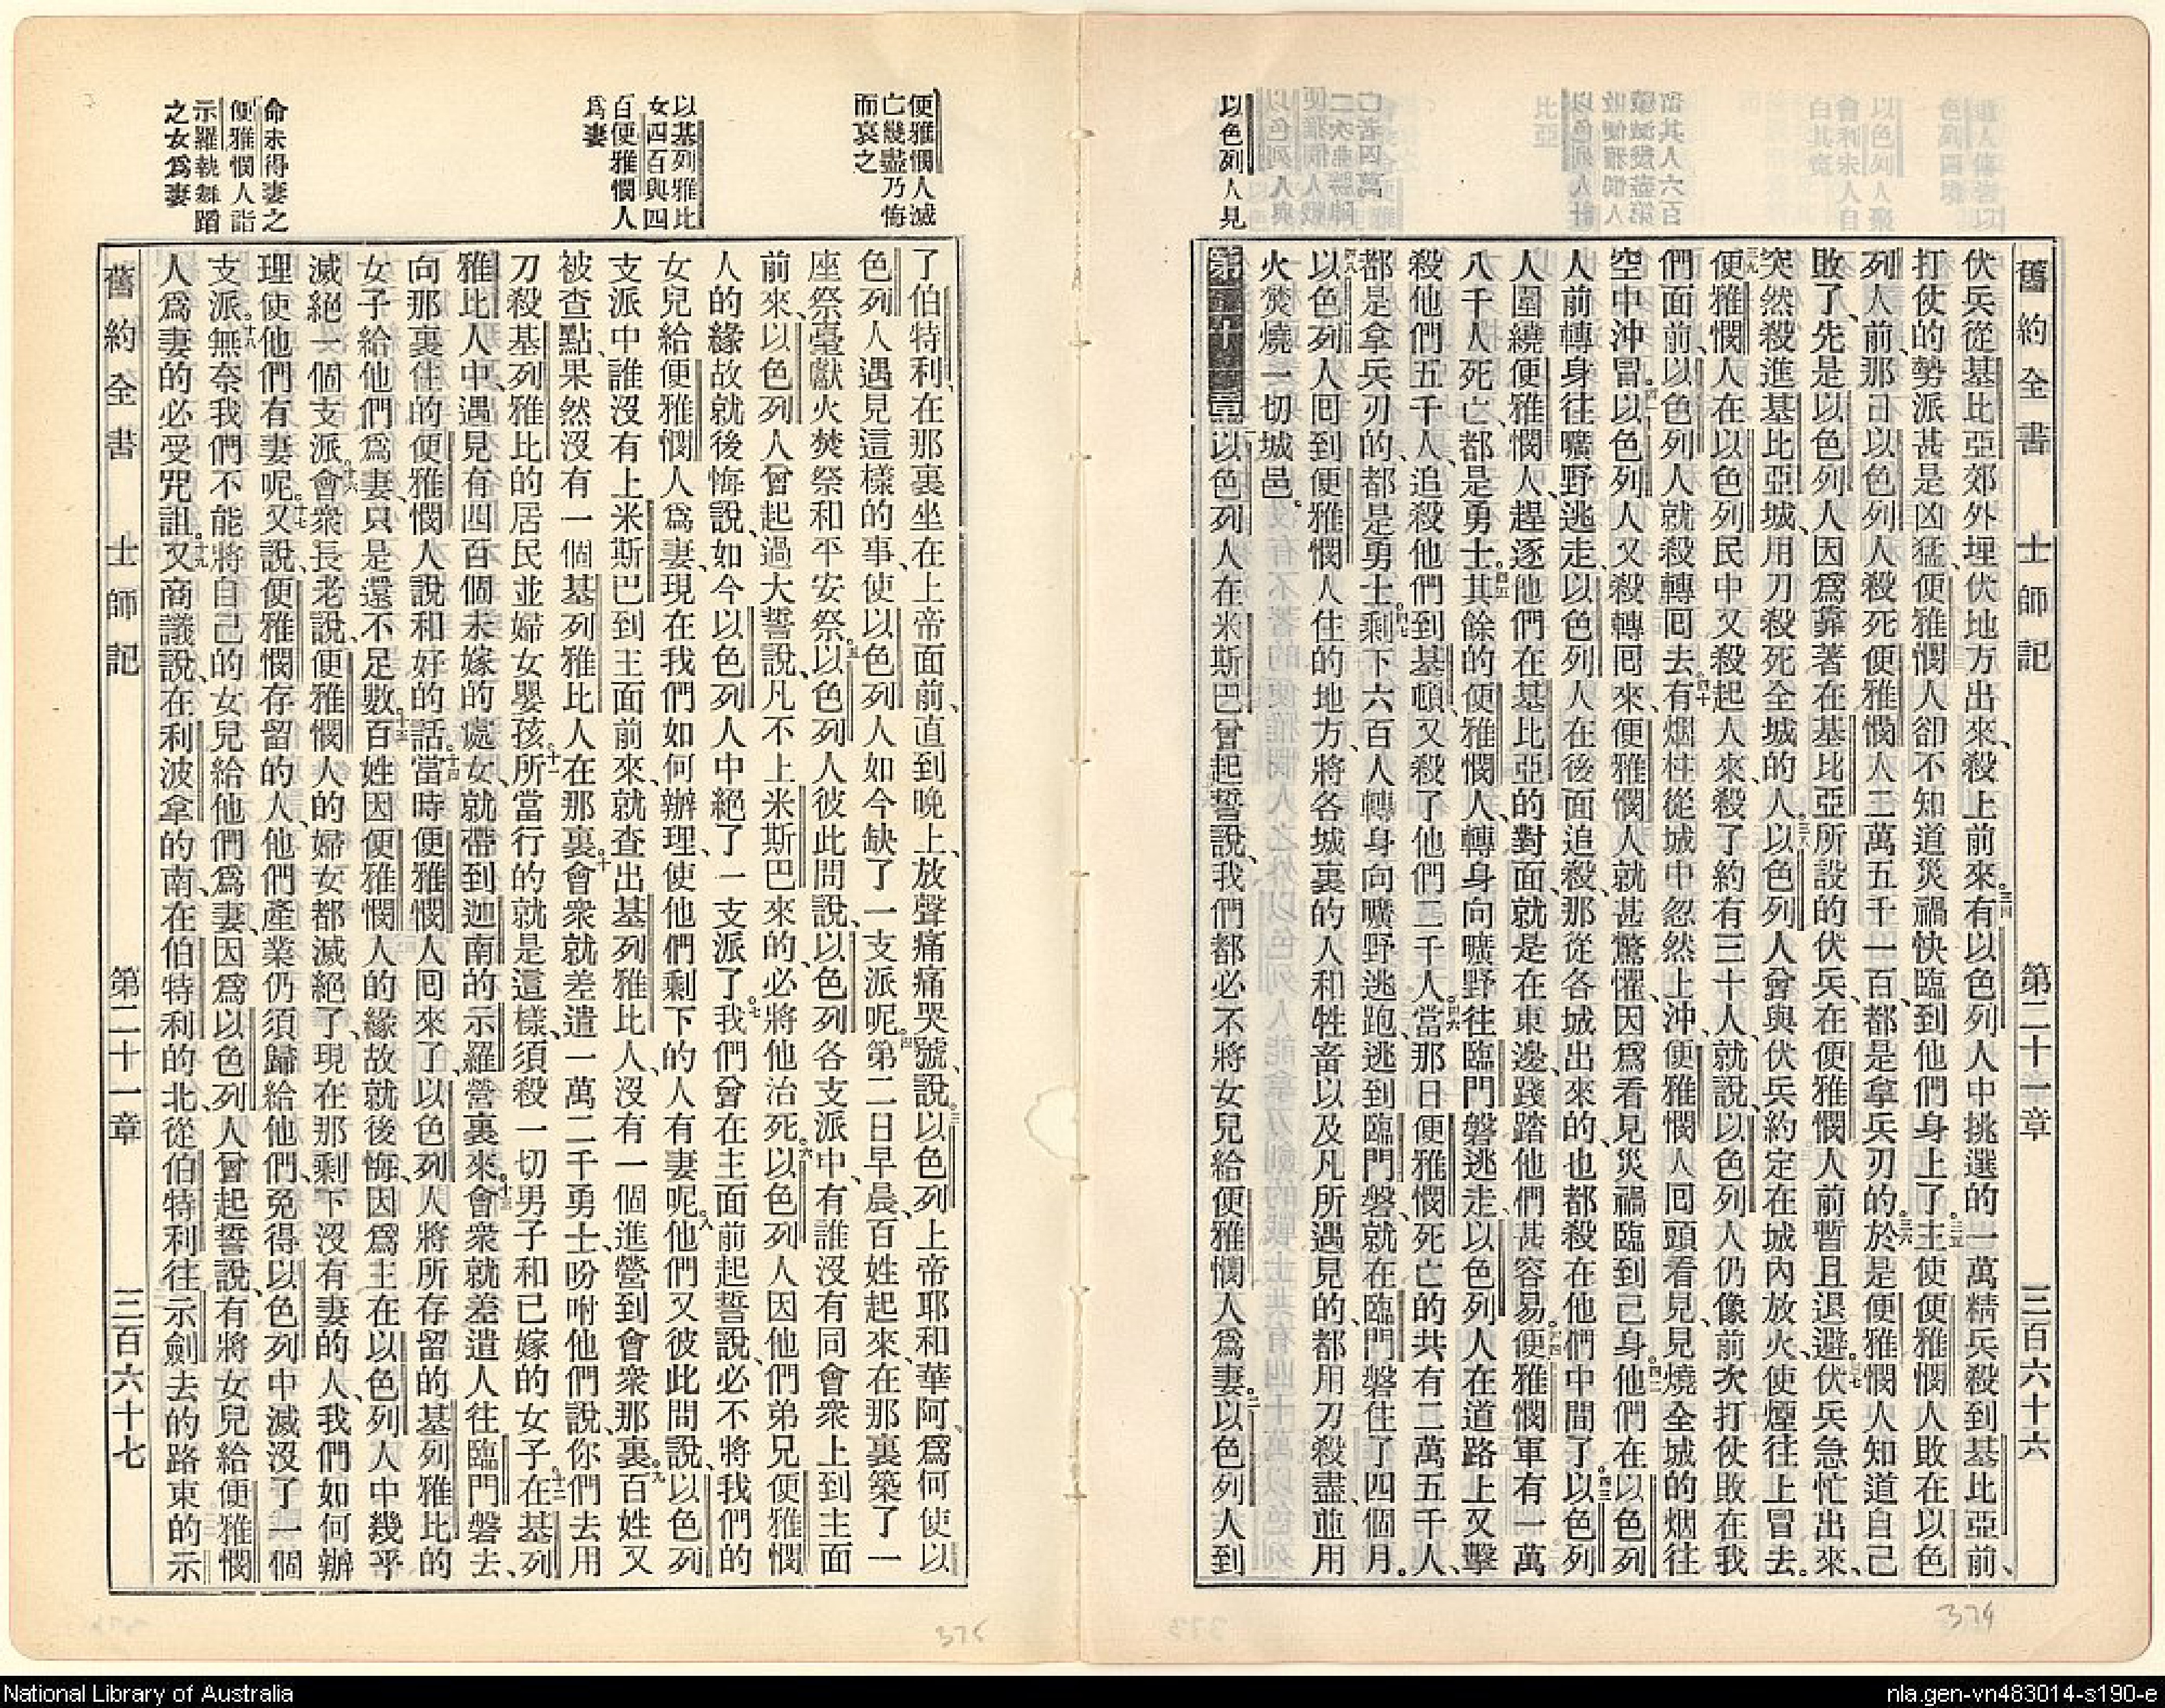 舊約全書　士師記　第二十一章　三百六十六
伏兵從基比亞郊外埋伏地方出來、殺上前來。三四有以色列人中挑選的一萬精兵殺到基比亞前、
打仗的勢派甚是凶猛、便雅憫人卻不知道災禍快臨到他們身上了。三五主使便雅憫人敗在以色
列人前、那日以色列人殺死便雅憫人二萬五千一百、都是拿兵刃的。三六於是便雅憫人知道自己
敗了、先是以色列人因爲靠著在基比亞所設的伏兵、在便雅憫人前暫且退避。三七伏兵急忙出來、
突然殺進基比亞城、用刀殺死全城的人。三八以色列人曾與伏兵約定在城內放火、使煙往上冒去。
三九便雅憫人在以色列民中又殺起人來、殺了約有三十人、就說、以色列人仍像前次打仗敗在我
們面前、以色列人就殺轉囘去。四十有烟柱從城中忽然上沖、便雅憫人囘頭看見、見燒全城的烟往
空中沖冒。四一以色列人又殺轉囘來、便雅憫人就甚驚懼、因爲看見災禍臨到己身。四二他們在以色列
人前轉身往曠野逃走、以色列人在後面追殺、那從各城出來的、也都殺在他們中間了。四三以色列
人圍繞便雅憫人、趕逐他們、在基比亞的對面、就是在東邊、踐踏他們甚容易。四四便雅憫軍有一萬
八千人死亡、都是勇士。四五其餘的便雅憫人、轉身向曠野往臨門磐逃走、以色列人在道路上又擊
殺他們五千人、追殺他們到基頓、又殺了他們二千人。四六當那日便雅憫死亡的共有二萬五千人、
都是拿兵刃的、都是勇士。四七剩下六百人轉身向曠野逃跑、逃到臨門磐、就在臨門磐住了四個月。
四八以色列人囘到便雅憫人住的地方、將各城裏的人和牲畜以及凡所遇見的、都用刀殺盡、並用
火焚燒一切城邑。
第二十一章　以色列人在米斯巴曾起誓說、我們都必不將女兒給便雅憫人爲妻。二以色列人到
以色列人見
便雅憫人滅
亡幾盡乃悔
而哀之
以基列雅比
女四百與四
百便雅憫人
爲妻
命未得妻之
便雅憫人詣
示羅執舞蹈
之女爲妻
了伯特利、在那裏坐在上帝面前、直到晚上、放聲痛痛哭號、說。三以色列上帝耶和華阿、爲何使以
色列人遇見這樣的事、使以色列人如今缺了一支派呢。四第二日早晨、百姓起來、在那裏築了一
座祭臺、獻火焚祭和平安祭。五以色列人彼此問說、以色列各支派中、有誰沒有同會衆上到主面
前來、以色列人曾起過大誓說、凡不上米斯巴來的、必將他治死。六以色列人因他們弟兄便雅憫
人的緣故就後悔說、如今以色列人中絕了一支派了。七我們曾在主面前起誓說、必不將我們的
女兒給便雅憫人爲妻、現在我們如何辦理、使他們剩下的人有妻呢。八他們又彼此問說、以色列
支派中、誰沒有上米斯巴到主面前來、就查出基列雅比人、沒有一個進營到會衆那裏。九百姓又
被查點、果然沒有一個基列雅比人在那裏。十會衆就差遣一萬二千勇士、吩咐他們說、你們去用
刀殺基列雅比的居民並婦女嬰孩。十一所當行的就是這樣、須殺一切男子和已嫁的女子。十二在基列
雅比人中、遇見有四百個未嫁的處女、就帶到迦南的示羅營裏來。十三會衆就差遣人往臨門磐去、
向那裏住的便雅憫人說和好的話。十四當時便雅憫人囘來了、以色列人將所存留的基列雅比的
女子給他們爲妻、只是還不足數。十五百姓因便雅憫人的緣故就後悔、因爲主在以色列人中幾乎
滅絕一個支派。十六會衆長老說、便雅憫人的婦女都滅絕了、現在那剩下沒有妻的人、我們如何辦
理使他們有妻呢。十七又說、便雅憫存留的人、他們產業仍須歸給他們、免得以色列中滅沒了一個
支派。十八無奈我們不能將自己的女兒給他們爲妻、因爲以色列人曾起誓說、有將女兒給便雅憫
人爲妻的必受咒詛。十九又商議說、在利波拿的南、在伯特利的北、從伯特利往示劍去的路東的示
舊約全書　士師記　第二十一章　三百六十七
374
375
National Library of Australia
nla.gen-vn483014-s190-e